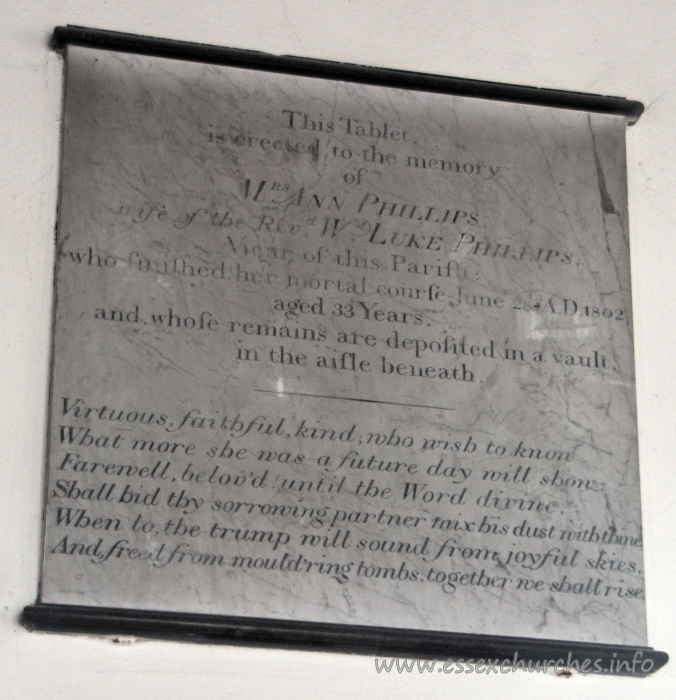 This Tablet,
is erected to the memory
of
Mrs. ANN PHILLIPS,
wife of the Rev.d Wm. LUKE PHILLIPS,
Vicar of this Pariſh:
who finiſhed her mortal courſe, June A.D. 1802,
aged 33 Years.
and, whoſe remains are depoſited in a vault,
in the aiſle beneath.
Virtuous, faithful, kind; who wish to know
What more she was a future day will show:
Farewell, belov'd! until the Word divine
Shall bid thy sorrowing partner mix his dust with thine
When lo, the trump will sound from joyful skies,
And, freed from mould'ring tombs, together we shall rise
www.essexchurches.info